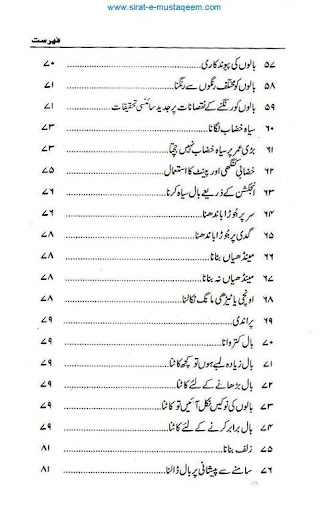 www.sirat-e-mustaqeem.com
فہرست
۵۷ بالوں کی پیوندکاری ............ ۷۰
۵۸ بالوں کو مختلف رنگوں سے رنگنا ............ ۷۱
۵۹ بالوں کو رنگنے کے نقصانات پر جدید سائنسی تحقیقات ۷۱
۶۰ سیاہ خضاب لگانا ............ ۷۳
۶۱ بڑی عمر پر سیاہ خضاب نہیں جچتا ............ ۷۳
۶۲ خضابی کنگھی اور پینٹ کا استعمال ............ ۷۵
۶۳ انجکشن کے ذریعے بال سیاہ کرنا ............ ۷۶
۶۴ سر پر جُوڑا باندھنا ............ ۷۶
۶۵ گدی پر جُوڑا باندھنا ............ ۷۸
۶۶ مینڈھیاں بنانا ............ ۷۸
۶۷ مینڈھیاں نہ بنانا ............ ۷۸
۶۸ اونچی یا ٹیڑھی مانگ نکالنا ............ ۷۸
۶۹ پراندی ............ ۷۹
۷۰ بال کتروانا ............ ۷۹
۷۱ بال زیادہ لمبے ہوں تو کچھ کاٹنا ............ ۷۹
۷۲ بال بڑھانے کے لئے کاٹنا ............ ۷۹
۷۳ بالوں کی نوکیں نکل آئیں تو کاٹنا ............ ۷۹
۷۴ بال برابر کرنے کے لئے کاٹنا ............ ۷۹
۷۵ زلف بنانا ............ ۸۱
۷۶ سامنے سے پیشانی پر بال ڈالنا ............ ۸۱